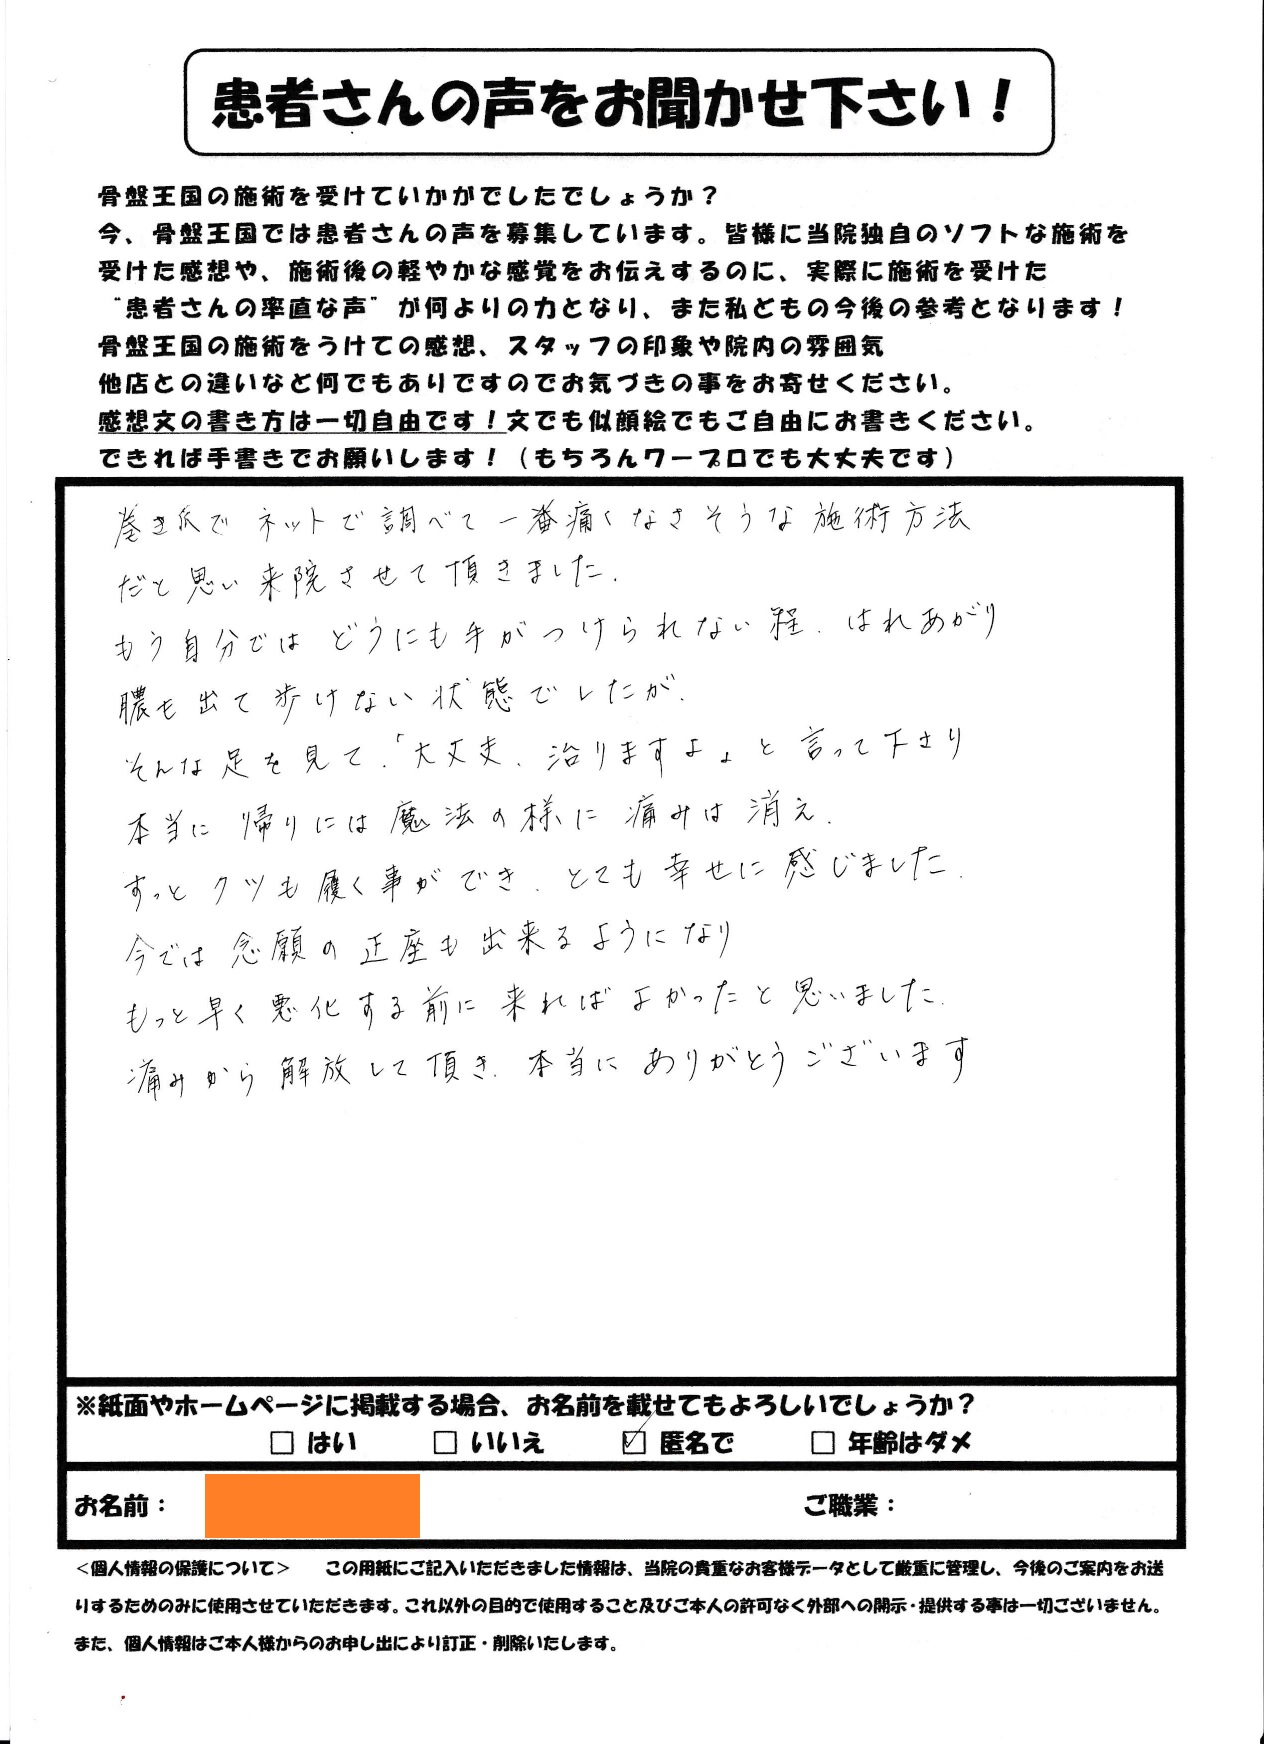 患者さんの声をお聞かせ下さい！
骨盤王国の施術を受けていかがでしたでしょうか？
今、骨盤王国では患者さんの声を募集しています。皆様に当院独自のソフトな施術を
受けた感想や、施術後の軽やかな感覚をお伝えするのに、実際に施術を受けた
“患者さんの率直な声”が何よりの力となり、また私どもの今後の参考となります！
骨盤王国の施術をうけての感想、スタッフの印象や院内の雰囲気
他店との違いなど何でもありですのでお気づきの事をお寄せください。
感想文の書き方は一切自由です！文でも似顔絵でもご自由にお書きください。
できれば手書きでお願いします！（もちろんワープロでも大丈夫です）
巻き爪で ネットで調べて一番痛くなさそうな施術方法
だと思い来院させて頂きました.
もう自分では どうにも手がつけられない程、はれあがり
膿も出て歩けない状態でしたが、
そんな足を見て、「大丈夫、治りますよ」と言って下さり
本当に帰りには魔法の様に痛みは消え、
すっとクツも履く事ができ、とても幸せに感じました.
今では念願の正座も出来るようになり
もっと早く悪化する前に来ればよかったと思いました.
痛みから解放して頂き、本当にありがとうございます
※紙面やホームページに掲載する場合、お名前を載せてもよろしいでしょうか？
□ はい □ いいえ ☑ 匿名で □ 年齢はダメ
お名前： ご職業：
＜個人情報の保護について＞ この用紙にご記入いただきました情報は、当院の貴重なお客様データとして厳重に管理し、今後のご案内をお送
りするためのみに使用させていただきます。これ以外の目的で使用すること及びご本人の許可なく外部への開示・提供する事は一切ございません。
また、個人情報はご本人様からのお申し出により訂正・削除いたします。